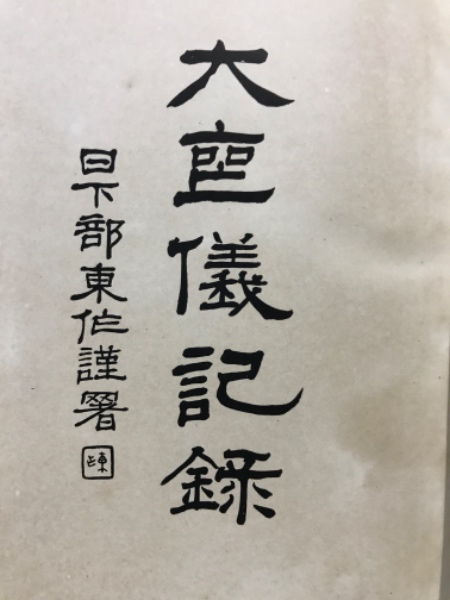 大喪儀記録
日下部東作謹署